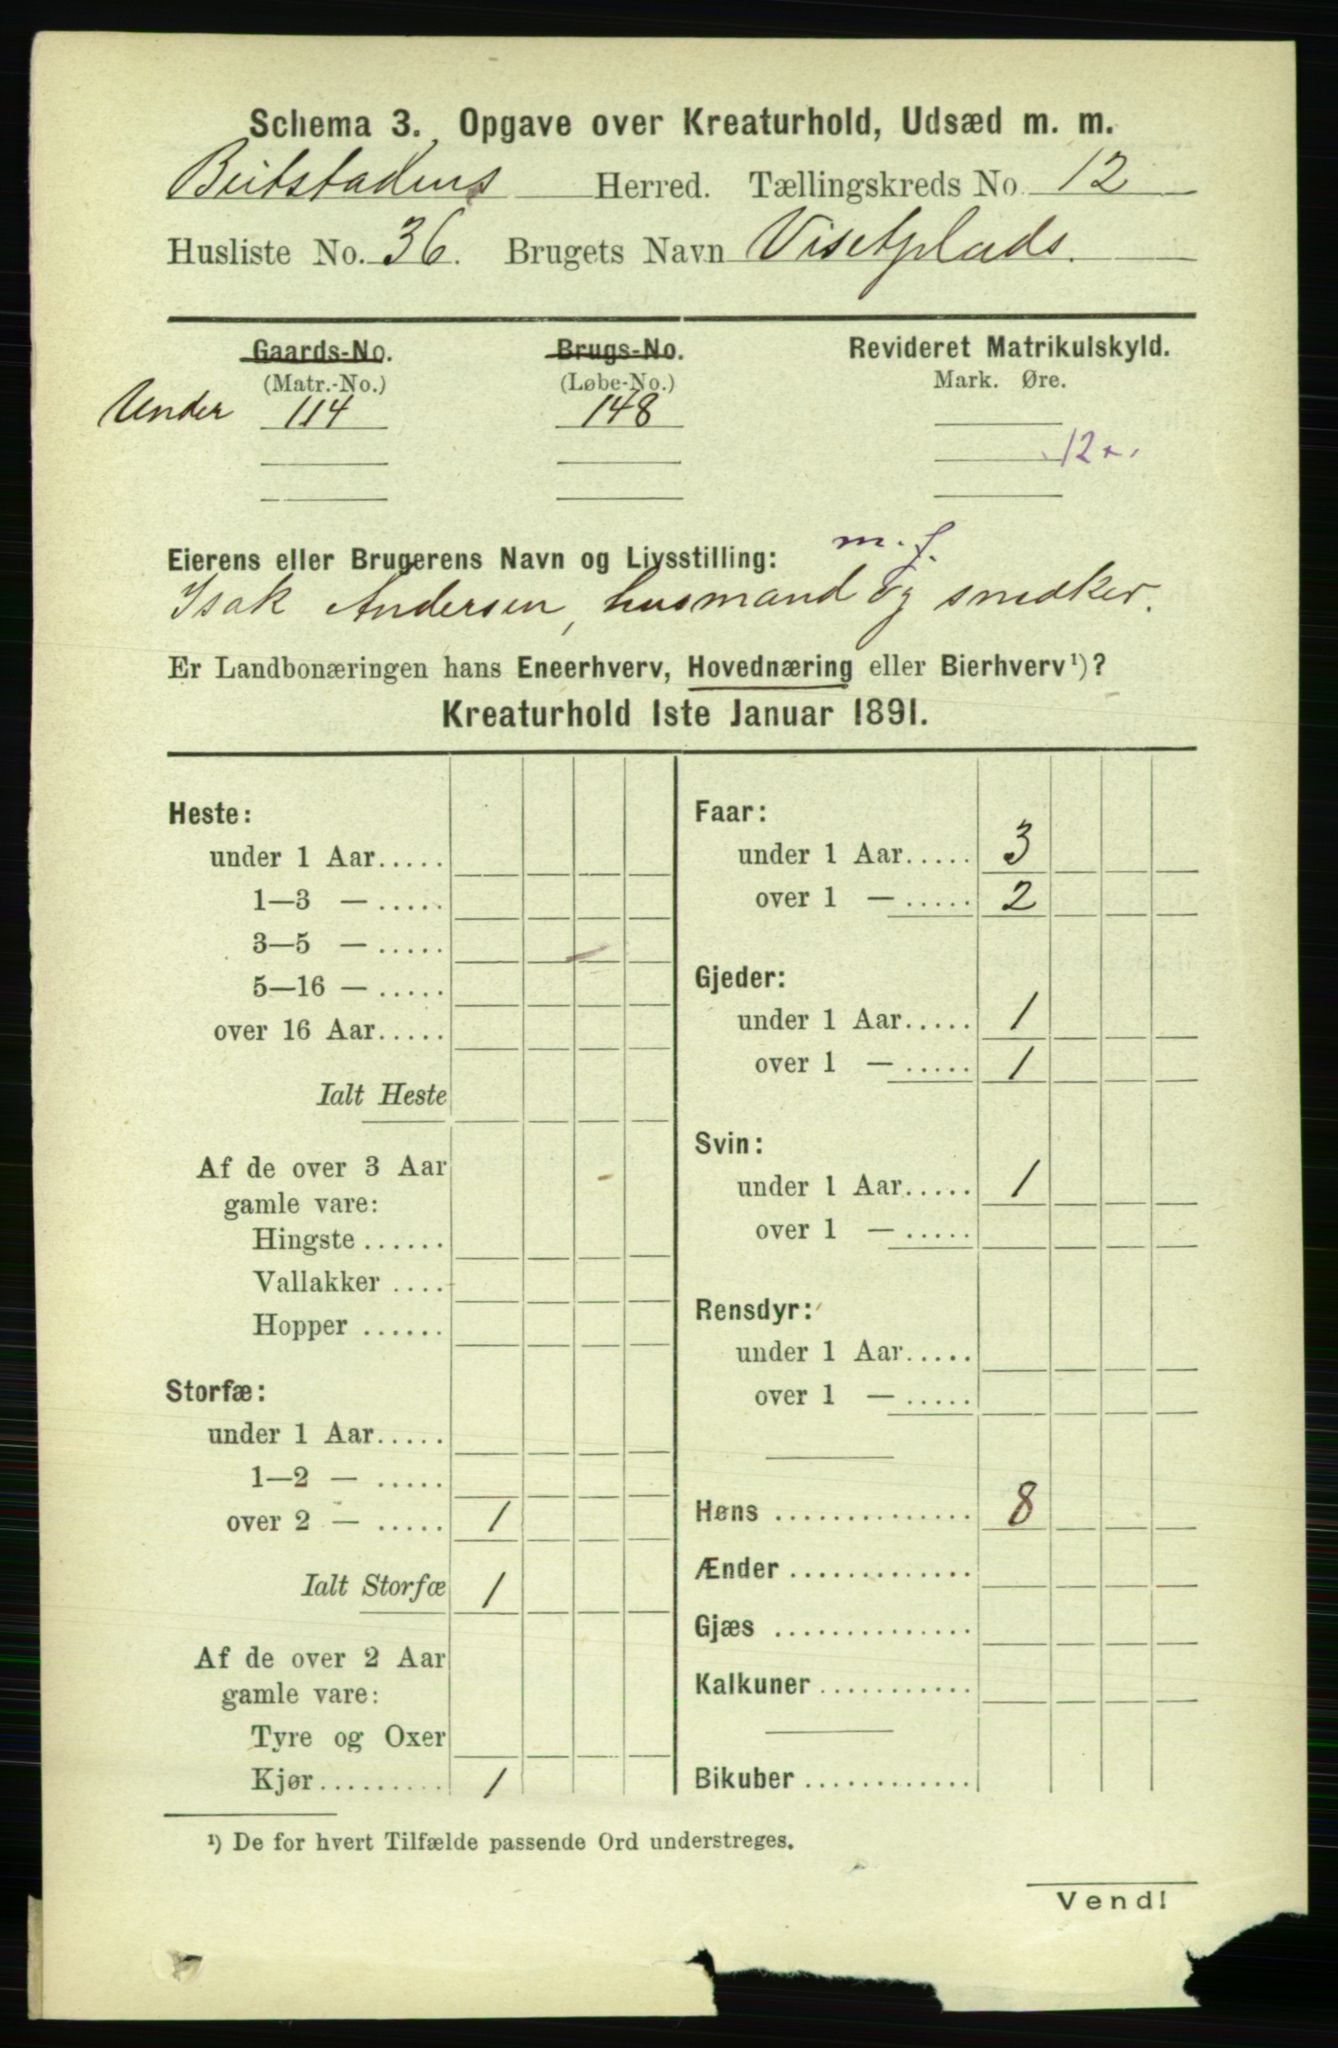 Schema 3. Opgave over Kreaturhold, Udsæd m. m.
Beitstadens Herred. Tællingskreds No. 12
Husliste No. 36. Brugets Navn Visetplads.
Gaards-No. Brugs-No. Revideret Matrikulskyld.
(Matr.-No.) (Løbe-No.) Mark. Øre.
Under 114 148
12
m. f.
Eierens eller Brugerens Navn og Livsstilling:
Isak Andersen, husmand og snedker.
Er Landbonæringen hans Eneerhverv, Hovednæring eller Bierhverv¹)?
Kreaturhold 1ste Januar 1891.
Heste:
under 1 Aar.....
1—3 — .....
3—5 — .....
5—16 — .....
over 16 Aar.....
Ialt Heste
Af de over 3 Aar
gamle vare:
Hingste ......
Vallakker ....
Hopper ......
Storfæ:
under 1 Aar.....
1—2 — .....
over 2 — ..... 1
Ialt Storfæ 1
Af de over 2 Aar
gamle vare:
Tyre og Oxer
Kjør......... 1
Faar:
under 1 Aar..... 3
over 1 — ..... 2
Gjeder:
under 1 Aar..... 1
over 1 — ..... 1
Svin:
under 1 Aar..... 1
over 1 — .....
Rensdyr:
under 1 Aar.....
over 1 — .....
Høns .............. 8
Ænder .............
Gjæs ..............
Kalkuner ...........
Bikuber ............
¹) De for hvert Tilfælde passende Ord understreges.
Vend!